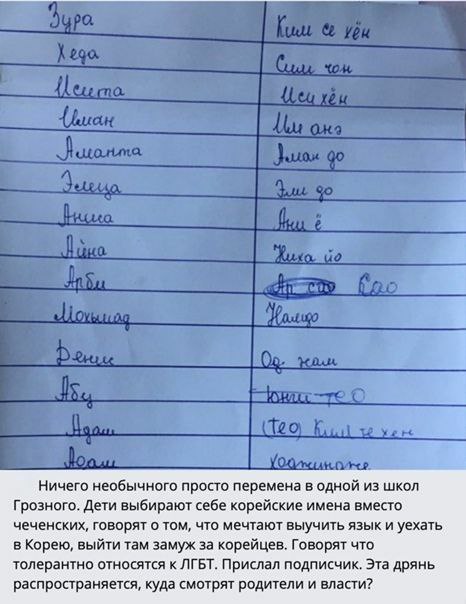 Зура Ким се хён
Хеда Сим чон
Исита Иси хён
Иман Им анэ
Аманта Аман до
Элеца Эли до
Аниса Ани ё
Айна Ниха йо
Арби Ар сао Сао
Мохьмад Намдо
Денис Од нам
Абу Юнги тео
Адам (тео) Ким те хен
Адам
Ничего необычного просто перемена в одной из школ
Грозного. Дети выбирают себе корейские имена вместо
чеченских, говорят о том, что мечтают выучить язык и уехать
в Корею, выйти там замуж за корейцев. Говорят что
толерантно относятся к ЛГБТ. Прислал подписчик. Эта дрянь
распространяется, куда смотрят родители и власти?